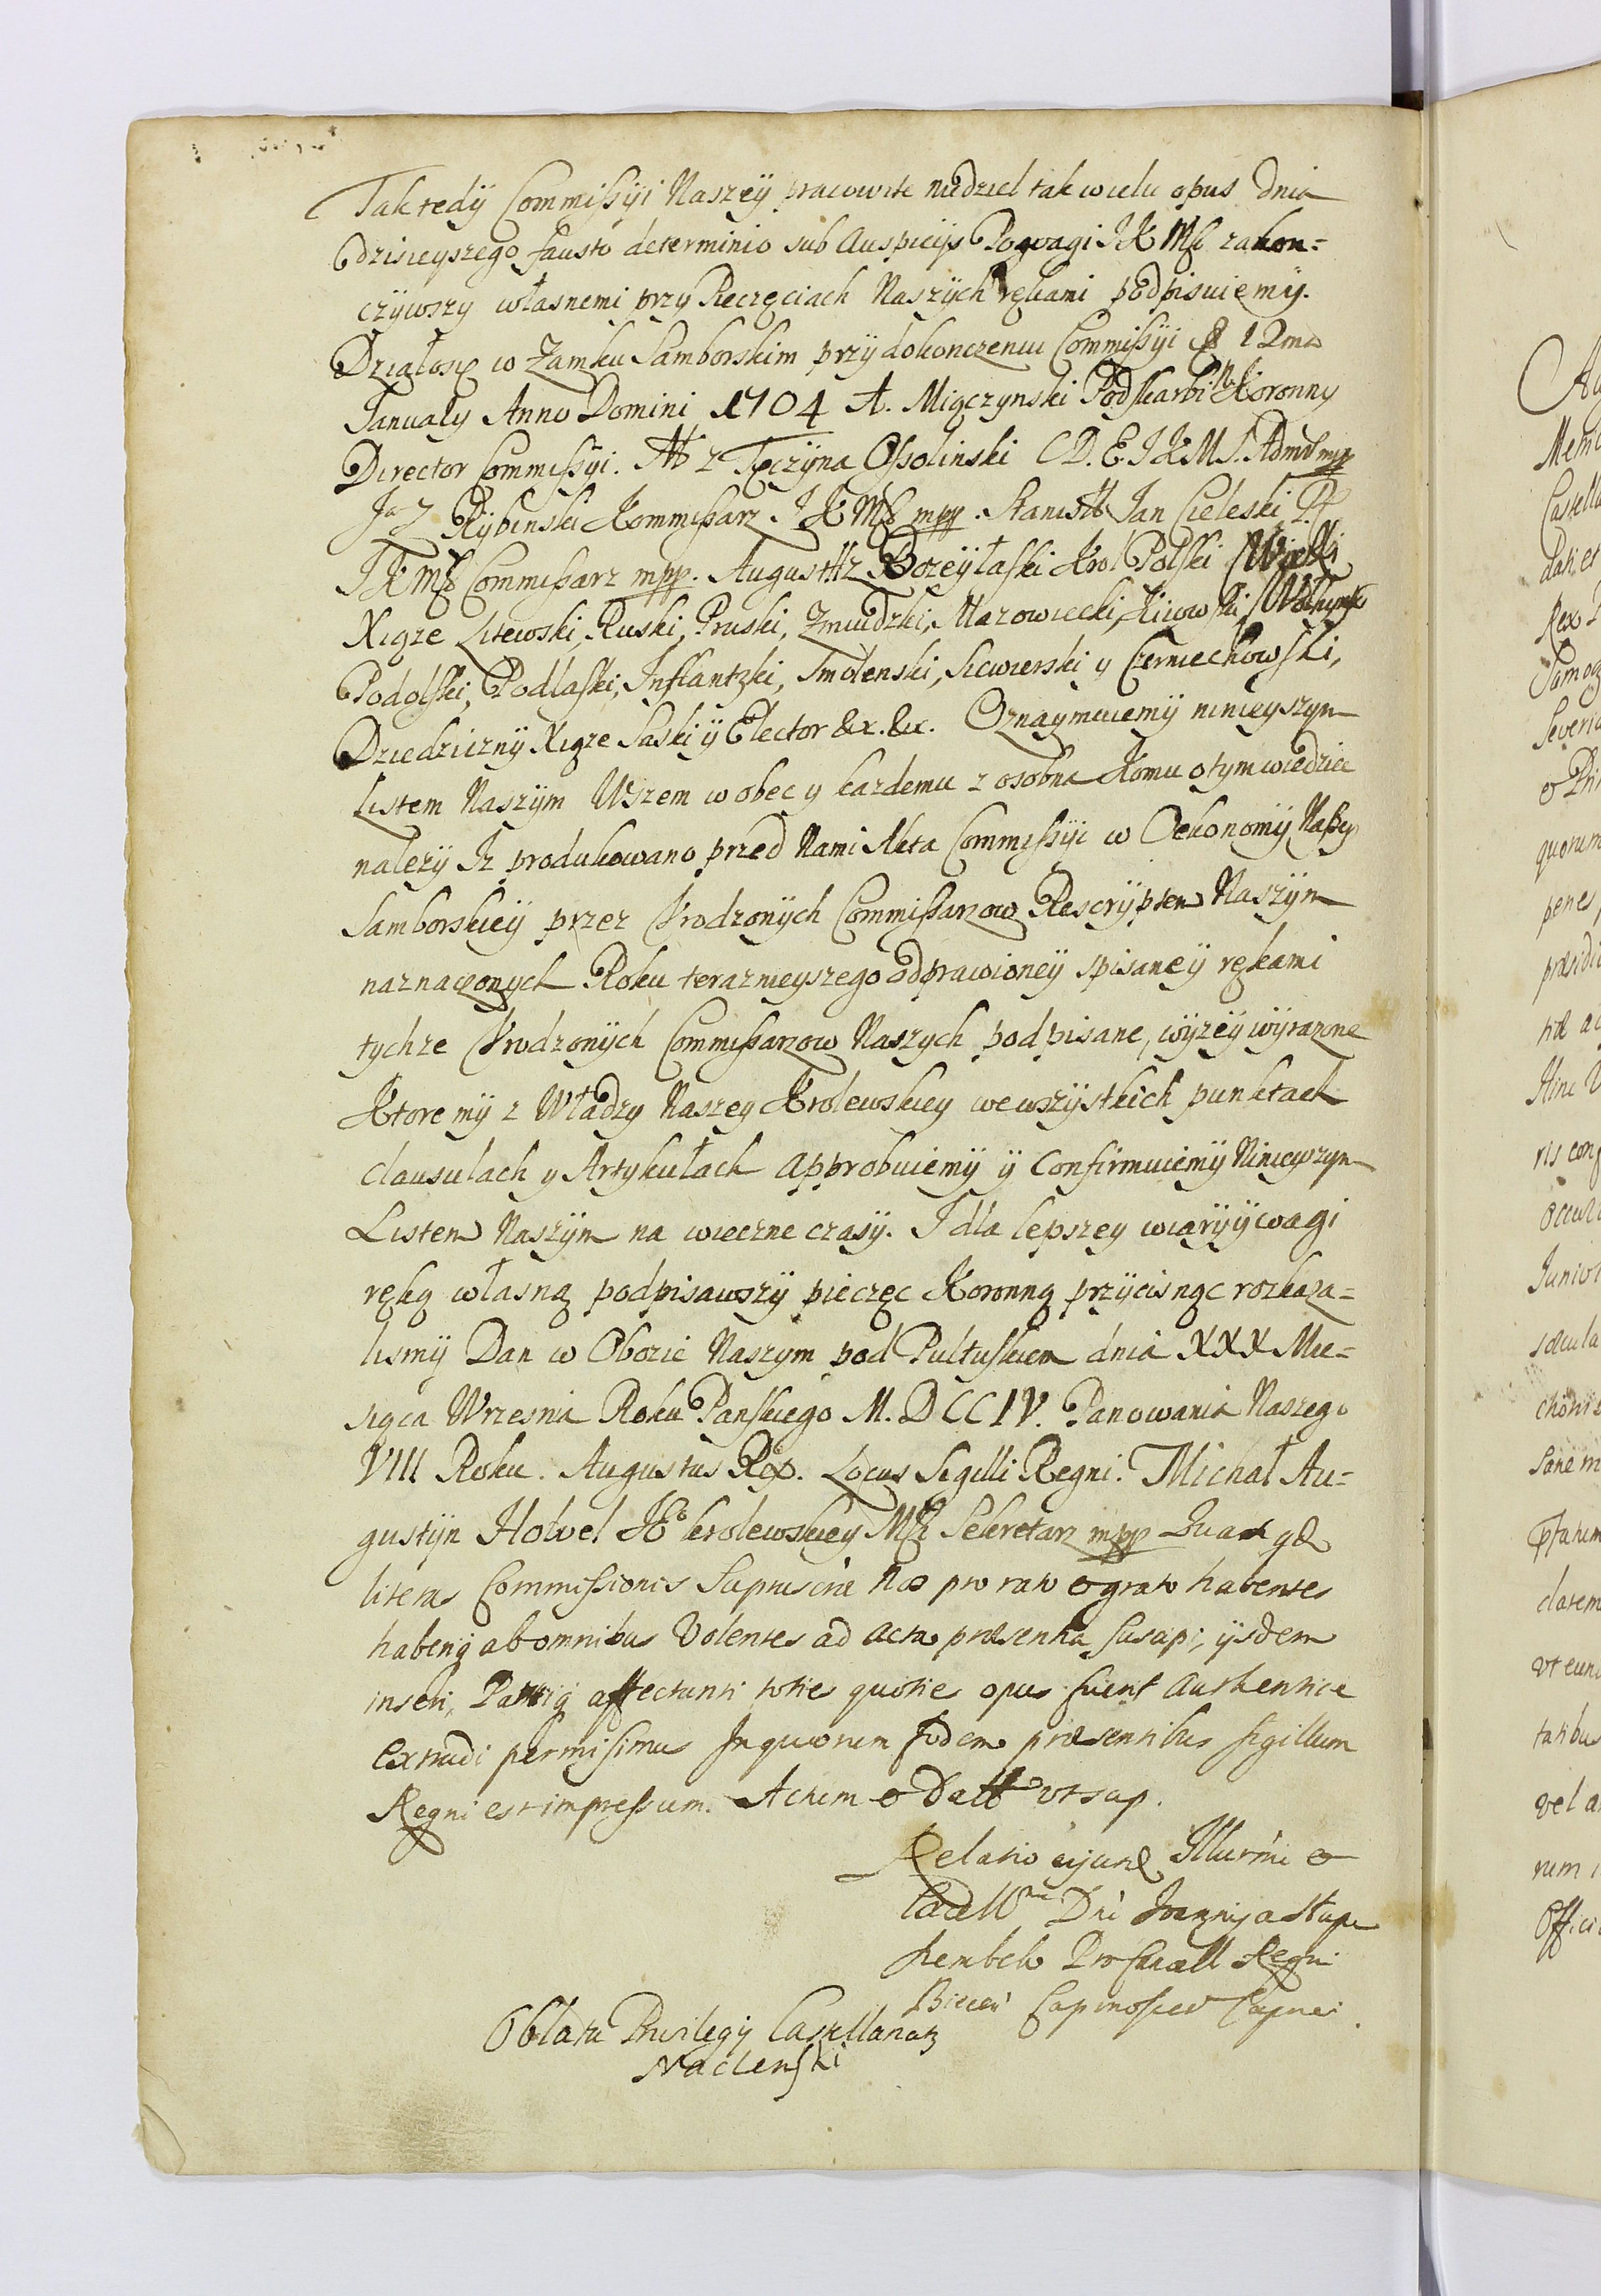 Tak tedÿ Commissÿi Naszeÿ pracowite niedziel tak wielu opus dnia
dzisieyszego fausto determinio sub Auspicijs Powagi J K Mći zakon=
czÿwszy własnemi przy Pieczęciach Naszÿch rękami podpisuiemÿ.
Działosię w Zamku Samborskim przÿ dokonczeniu Commissÿi 12ma
Januarÿ Anno Domini 1704 A. Miączynski Podskarbi N. Koronny
Director Commissÿi. M z Tęczÿna Ossolinski C D. E J K M S. Admr mpp
Ja Z Rÿbinski Kommissarz J K Mći mpp. Stanisł Jan Cieleski P.P
J K Mći Commissarz mpp. August II z Bozeÿ łaski Krol Polski Wielki
Xiąze Litewski, Ruski, Pruski, Zmuidzki, Mazowiecki, Kiiowski, Wołhynsk
Podolski, Podlaski, Inflantzki, Smolenski, Siewierski y Czerniechowski,
Dziedzicznÿ Xiąze Saski ÿ Elector &c. &c. Oznaymuiemÿ ninieyszym
Listem Naszÿm Wszem w obec y kazdemu z osobna Komu o tym wiedziec
nalezÿ Iz produkowano przed Nami Akta Commissÿi w Oekonomÿ Naszey
Samborskieÿ przez Vrodzonÿch Commissarzow Rescrÿptem Naszÿm
naznaczonych Roku teraznieyszego odprawioneÿ spisaneÿ rękami
tychze Vrodzonÿch Commissarzow Naszych podpisane, wÿzeÿ wÿrazone
Ktore mÿ z Władzy Naszey Krolewskiey we wszÿstkich punktach
clausulach y Artykułach approbuiemÿ ÿ Confirmuiemÿ Ninieyszym
Listem Naszÿm na wieczne czasÿ. I dla lepszey wiarÿ ÿ wagi
ręką własną podpisawszÿ pieczęc Koronną przÿcisnąc rozkaza=
lismÿ Dan w Obozie Naszym pod Pułtuskiem dnia XXX Mie=
siąca Wrzesnia Roku Panskiego M. DCCIV. Panowania Naszego
VIII Roku. Augustus Rex. Locus Sigilli Regni. Michał Au=
gustÿn Holvel Jº krolewskiey Mći Sekretarz mpp Quas qd
literas Commissionis Suprascrae Nos pro rato & grato habentes
haberiq ab omnibus Volentes ad acta præsentia suscipi, ijsdem
inseri, Partiq affectanti toties quoties opus fuerit authentice
extradi permisimus In quorum fidem præsentibus sigillum
Regni est impressum. Actum & Datt vt sup.
Relatio eijusd Illurmi &
Dni Joannis a Stupe
Szembek Pro Regni
Biecen
Oblata Privilegÿ Castellanatg
Naclenski